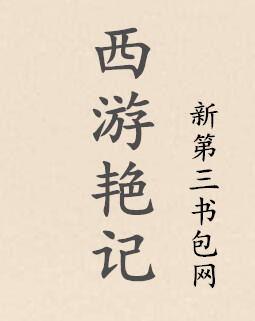 西游艳记
新第三书包网